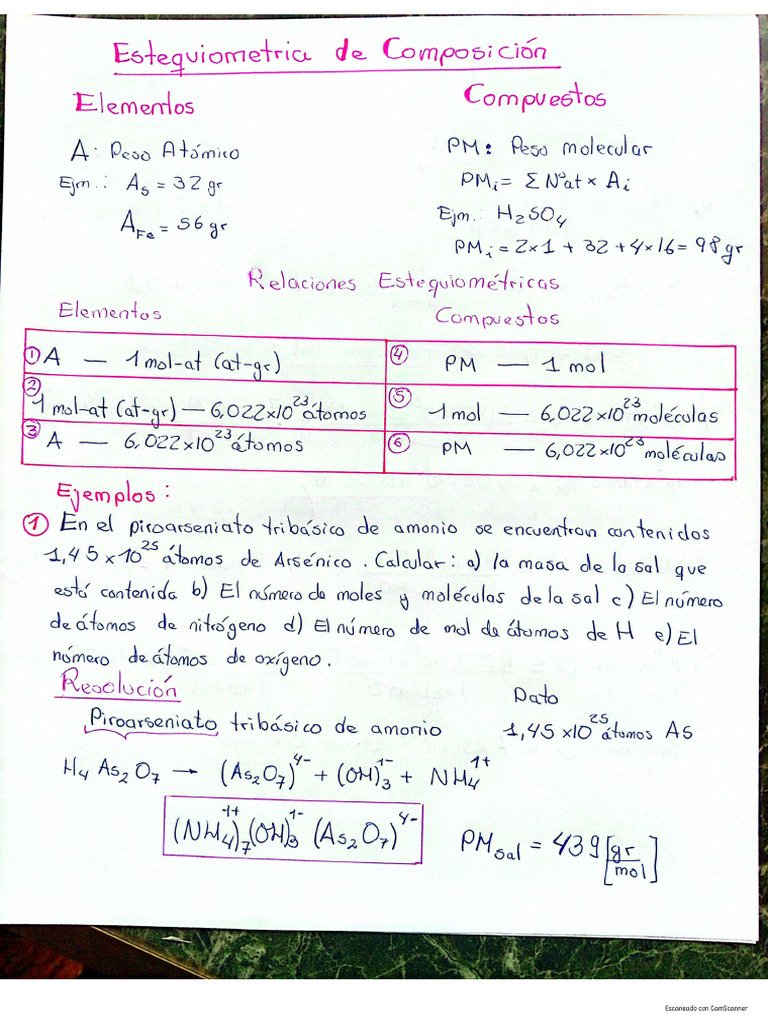 Estequiometria de Composición
Elementos
Compuestos
A: Peso Atómico
PM: Peso molecular
Ejm.: As = 32 gr
PMi = Σ Nºat × Ai
AFe = 56 gr
Ejm.: H2SO4
PMi = 2×1 + 32 + 4×16 = 98 gr
Relaciones Estequiométricas
Elementos
Compuestos
① A — 1 mol-at (at-gr)
④ PM — 1 mol
② 1 mol-at (at-gr) — 6,022×10^23 átomos
⑤ 1 mol — 6,022×10^23 moléculas
③ A — 6,022×10^23 átomos
⑥ PM — 6,022×10^23 moléculas
Ejemplos:
① En el piroarseniato tribásico de amonio se encuentran contenidos
1,45×10^25 átomos de Arsénico. Calcular: a) la masa de la sal que
está contenida b) El número de moles y moléculas de la sal c) El número
de átomos de nitrógeno d) El número de mol de átomos de H e) El
número de átomos de oxígeno.
Resolución
Dato
Piroarseniato tribásico de amonio
1,45×10^25 átomos As
H4As2O7 → (As2O7)^4- + (OH)3^1- + NH4^1+
(NH4)7^1+ (OH)3^1- (As2O7)^4-
PMsal = 439 [gr/mol]
Escaneado con CamScanner